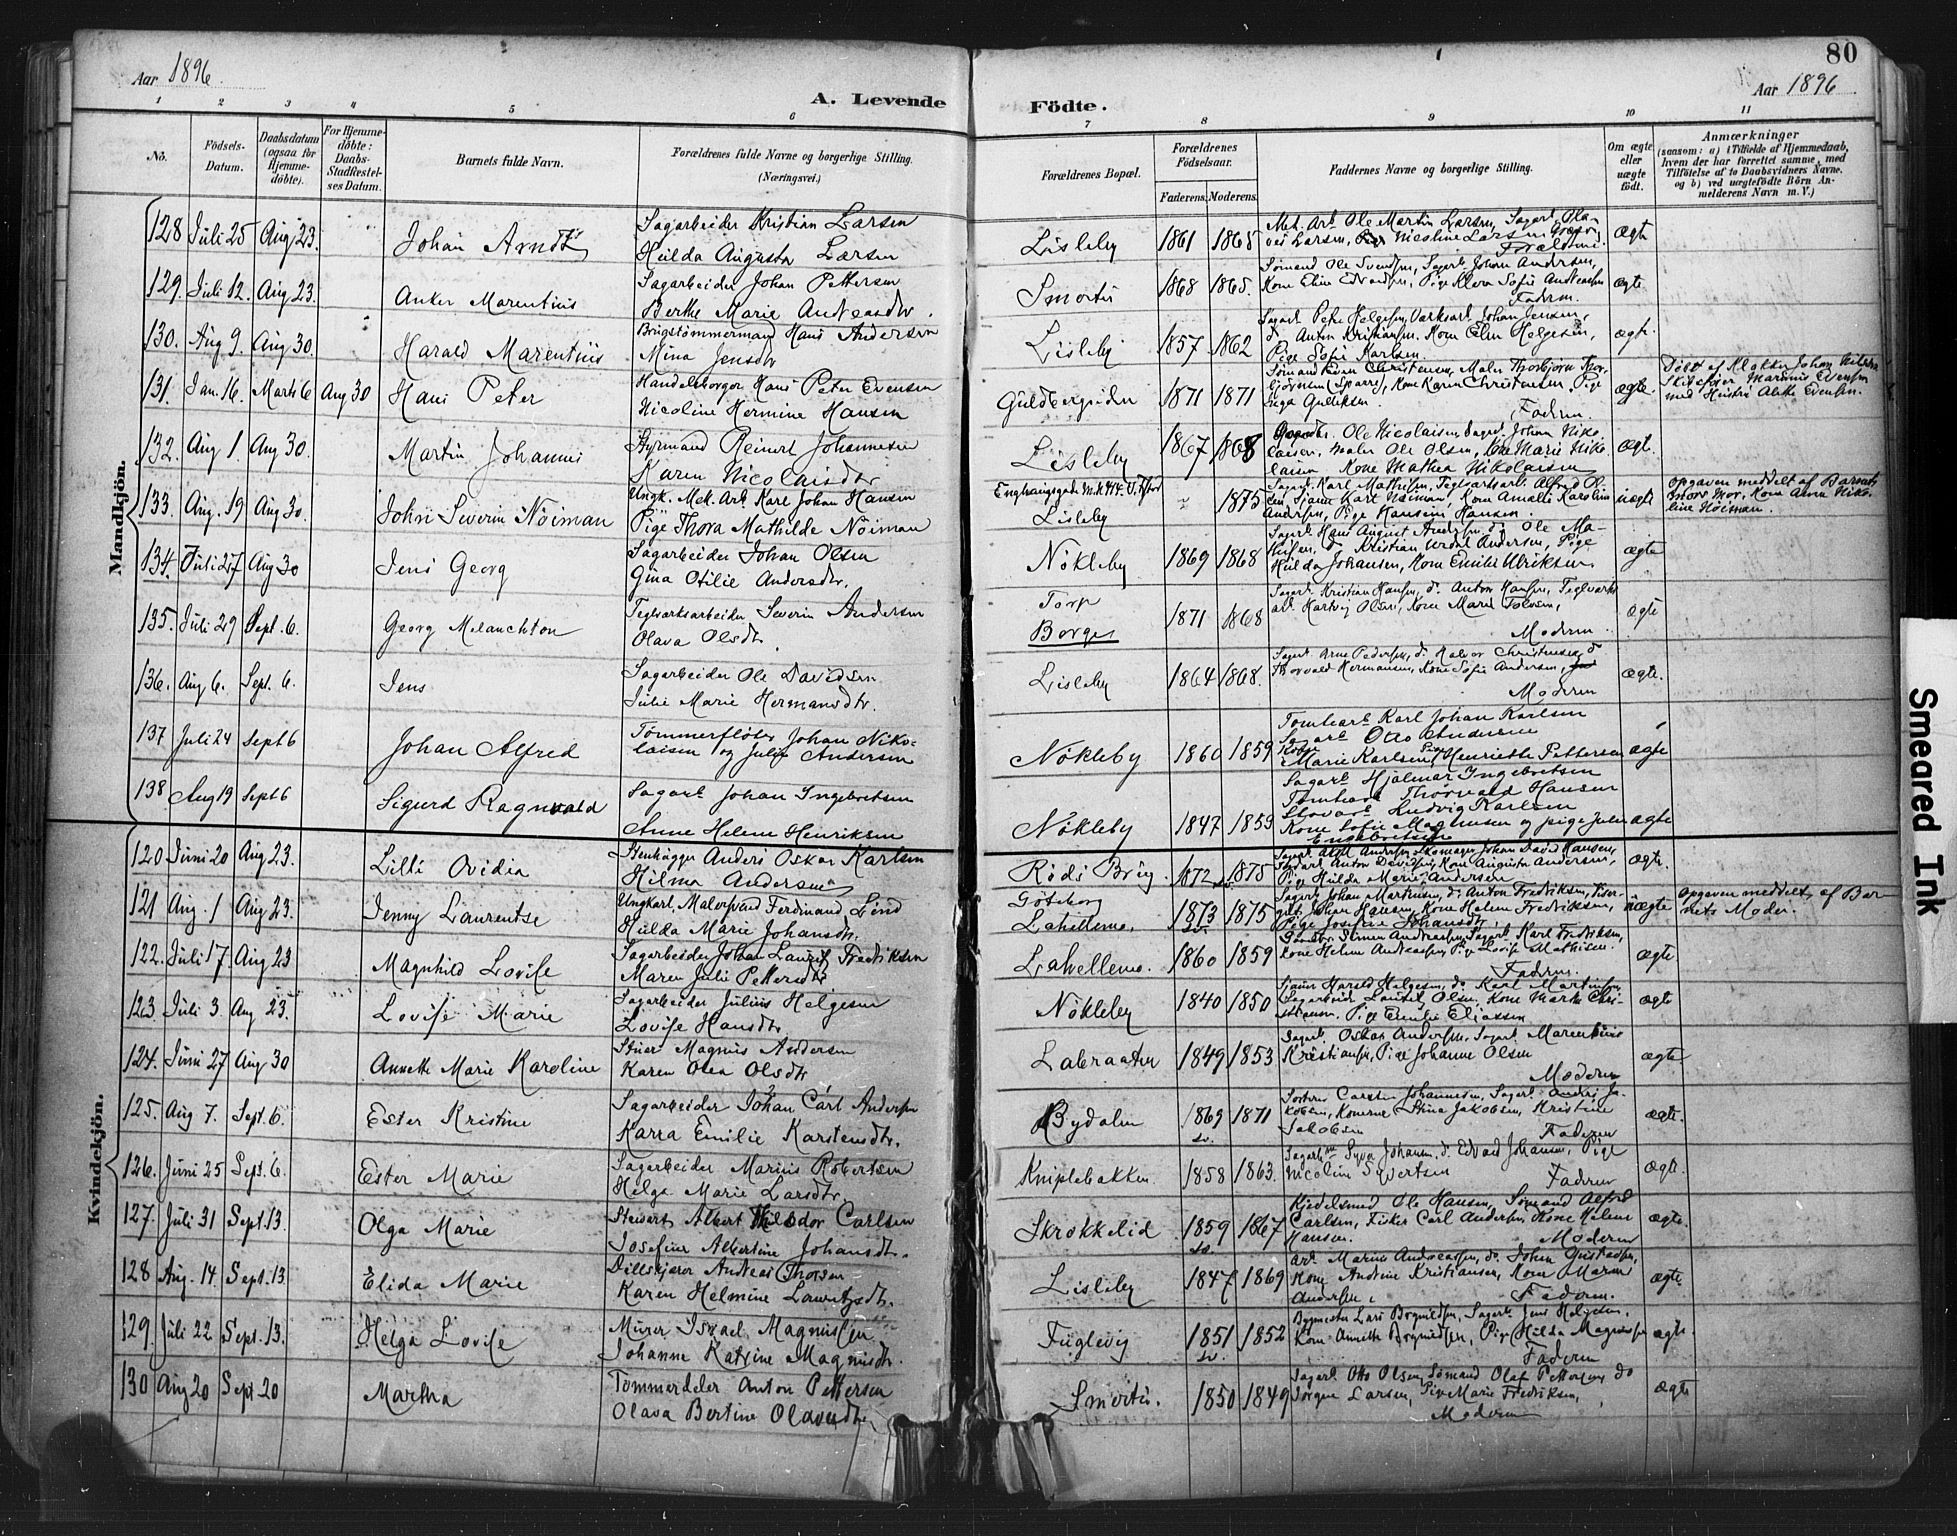 80
Aar 1896.
Aar 1896
A. Levende
Födte.
1 2 3 4 5 6
7 8 9 10 11
No.
Födsels-Datum.
Daabsdatum (ogsaa for Hjemme-döbte).
For Hjemme-döbte: Daabs-Stadfestel-ses Datum.
Barnets fulde Navn.
Forældrenes fulde Navne og borgerlige Stilling. (Næringsvei.)
Forældrenes Bopæl.
Forældrenes Födselsaar.
Faderens. Moderens.
Faddernes Navne og borgerlige Stilling.
Om ægte eller uægte födt.
Anmærkninger
(saasom: a) i Tilfælde af Hjemmedaab, hvem der har forrettet samme, med Tilföielse af to Daabsvidners Navne, og b) ved uægtefödte Börn Anmelderens Navn m. V.)
Mandkjön.
128 Juli 25 Aug 23. Johan Arndt
Sagarbeider Kristian Larsen
Hulda Augusta Larsen
Lisleby 1861 1865
Met. Arb. Ole Martin Larsen, Sagarb.
Larsen, Nicoline Larsen
ægte
129. Juli 12. Aug 23. Anker Marentius
Sagarbeider Johan Pettersen
Berthe Marie Andreasdtr.
Smertu 1868 1865.
Sömand Ole Svendsen, Sagarb. Johan Andersen,
Kone Eline Edvardsen, Pige Klara Sofie Andreassen
Faderen.
ægte
130. Aug 9. Aug 30. Harald Marentius
Brugstömmermand Hans Andersen
Mina Jensdtr
Lisleby 1857 1862
Sagarb. Peter Helgesen, Værksarb. Johan Jensen,
do Anton Kristiansen, Kone Elen Helgesen,
Pige Sofie Karlsen
ægte.
131. Jan. 16. Marts 6 Aug 30 Hans Peter
Handelsborger Hans Peter Evensen
Nicoline Hermine Hansen
1871 1871
Sömand Even Christensen, Maler Thorbjörn Thor-
björnsen (Sparre), Kone Karen Christensen, Pige
Inga Gulliksen.
Faderen.
ægte.
Döbt af Klokker Johan
Skibsförer Marinius Evensen
med Hustru Alette Evensen.
132. Aug 1. Aug 30. Martin Johannes
Styrmand Reinert Johannesen
Karen Nicolaisdtr
Lisleby 1867 1868
Ole Nicolaisen, Sagarb. Johan Niko-
laisen, Maler Ole Olsen, Kone Marie Niko-
laisen, Kone Mathea Nikolaisen
ægte.
133. Aug. 19 Aug 30. John Severin Nöiman
Ungk. Mek. Arb. Karl Johan Hansen
Pige Thora Mathilde Nöiman
Lisleby 1875
Sagarb. Karl Mathisen, Teglværksarb. Alfred Ol-
sen, Sjauer Karl Nöiman, Kone Amalie Karoline
Andersen, Pige Hansine Hansen.
uægte
Opgaven meddelt af Barnets
Mors Mor, Kone Anne Niko-
line Nöiman.
134. Juli 27 Aug 30 Jens Georg
Sagarbeider Johan Olsen
Gina Otilie Andersdtr.
Nökleby 1869 1868
Sagarb. Hans August Andersen, do Ole Ma-
thisen, do Kristian Andersen, Pige
Hulda Johansen, Kone Emilie Ulriksen.
ægte
135. Juli 29 Sept. 6. Georg Melanchton
Teglværksarbeider Severin Andersen
Olava Olsdtr.
Torp
Borge 1871 1868
Sagarb. Kristian Hansen, do. Anton Hansen, Teglværks-
arb. Hartvig Olsen, Kone Maren Tolvsen,
Moderen.
ægte
136. Aug 6. Sept. 6. Jens
Sagarbeider Ole Davidsen
Julie Marie Hermansdtr.
Lisleby 1864 1868.
Sagarb. Arne Pedersen, do. Halvor Christensen, do
Thorvald Hermansen, Kone Sofie Andersen,
Moderen
ægte.
137 Juli 24 Sept 6 Johan Alfred
Tömmerflöter Johan Niko-
laisen og Julie Andersen
Nökleby 1860 1859
Tomtearb. Karl Johan Karlsen
Sagarb. Otto Andersen
Kone Marie Karlsen, Pige Henriette Pettersen
ægte
138. Aug 19 Sept 6 Sigurd Ragnvald
Sagarb. Johan Ingebretsen
Anne Helene Henriksen
Nökleby 1847 1859
Sagarb. Hjalmar Ingebretsen
Tomtearb. Thorvald Hansen
Ludvig Karlsen
Kone Sofie Magnusen og pige Julie
Engebretsen
ægte
Kvindekjön.
120 Juni 20 Aug 23. Lilli Ovidia
Stenhugger Anders Oskar Karlsen
Hilma Andersen
Röds Brug. 1872 1875
Sagarb. Andersen, Skomager Johan David Hansen,
Anton Davidsen, Kone Augusta Andersen,
Pige Hulda Marie Andersen
ægte.
121 Aug. 1 Aug 23. Jenny Laurentse
Ungkarl, Malersvend Ferdinand Lind
Hulda Marie Johansdtr.
Göteborg
Lahellemo. 1873 1875
Sagarb. Johan Martinsen, do. Anton Fredriksen,
Johan Hansen, Kone Helene Fredriksen,
Pige Josefine Johansdtr.
uægte
Opgaven meddelt af Bar-
nets Moder.
122. Juli 17. Aug 23 Magnhild Lovise
Sagarbeider Johan Laurits Fredriksen
Maren Julie Pettersdtr
Lahellemo. 1860 1859
Andreassen, Sagarb. Karl Fredriksen,
Kone Helene Andreassen, Pige Lovise Mathisen.
Faderen.
ægte
123. Juli 3. Aug 23. Lovise Marie
Sagarbeider Julius Helgesen
Lovise Hansdtr.
Nökleby 1840 1850
Sjauer Harald Helgesen, do. Karl Martinsen,
Sagarbeider Lauritz Olsen, Kone Marthe Chri-
stiansen, Pige Emilie Eliassen
ægte
124. Juni 27 Aug 30 Annette Marie Karoline
Stuer Magnus Andersen
Karen Olea Olsdtr
Labraaten 1849 1853
Sagarb. Oskar Andersen, Sagarb. Marentius
Kristiansen, Pige Johanne Olsen
Moderen
ægte
125. Aug 7. Sept. 6. Ester Kristine
Sagarbeider Johan Carl Andersen
Karra Emilie Karstensdtr.
Bydalen 1869 1871
Carsten Johannesen, Sagarb. Anders Ja-
kobsen, Konerne Stina Jakobsen, Kristine
Jakobsen
Faderen
ægte.
126. Juni 25 Sept. 6. Ester Marie
Sagarbeider Marius Robertsen
Helga Marie Larsdtr.
Kniplebakken 1858 1863.
Johansen, do. Edvard Johansen, Pige
Nicoline Syvertsen
Faderen
ægte.
127. Juli 31 Sept. 13. Olga Marie
Stuert Albert Theodor Carlsen
Josefine Albertine Johansdtr.
Skrokkelid 1859 1867
Kjedelsmed Ole Hansen, Sömand Alfred
Carlsen, Fisker Carl Andersen, Kone Helene
Hansen.
Moderen
ægte.
128 Aug. 14. Sept. 13. Elida Marie
Dillskjærer Andreas Thorsen
Karen Helmine Lauritzdtr.
Lisleby 1847 1869
Arb. Marius Andreassen, do. Johan Gustavsen,
Kone Andrine Kristiansen, Kone Maren
Andersen.
Faderen.
ægte.
129. Juli 22. Sept. 13. Helga Lovise
Murer Israel Magnussen
Johanne Katrine Magnusdtr.
Fuglevig 1851 1852
Lars Bogmildsen, Sagarb. Jens Helgesen,
Kone Annette, Pige Hilda Magnussen
Faderen
ægte.
130 Aug 20 Sept 20 Martha
Tommerdeler Anton Pettersen
Olava Bertine Olavesdtr
Smertu. 1850 1849
Sagarb. Otto Olsen, Sömand Olaf Pettersen, do
Jörgen Larsen, Pige Marie Fredriksen,
Moderen
ægte
Smeared Ink